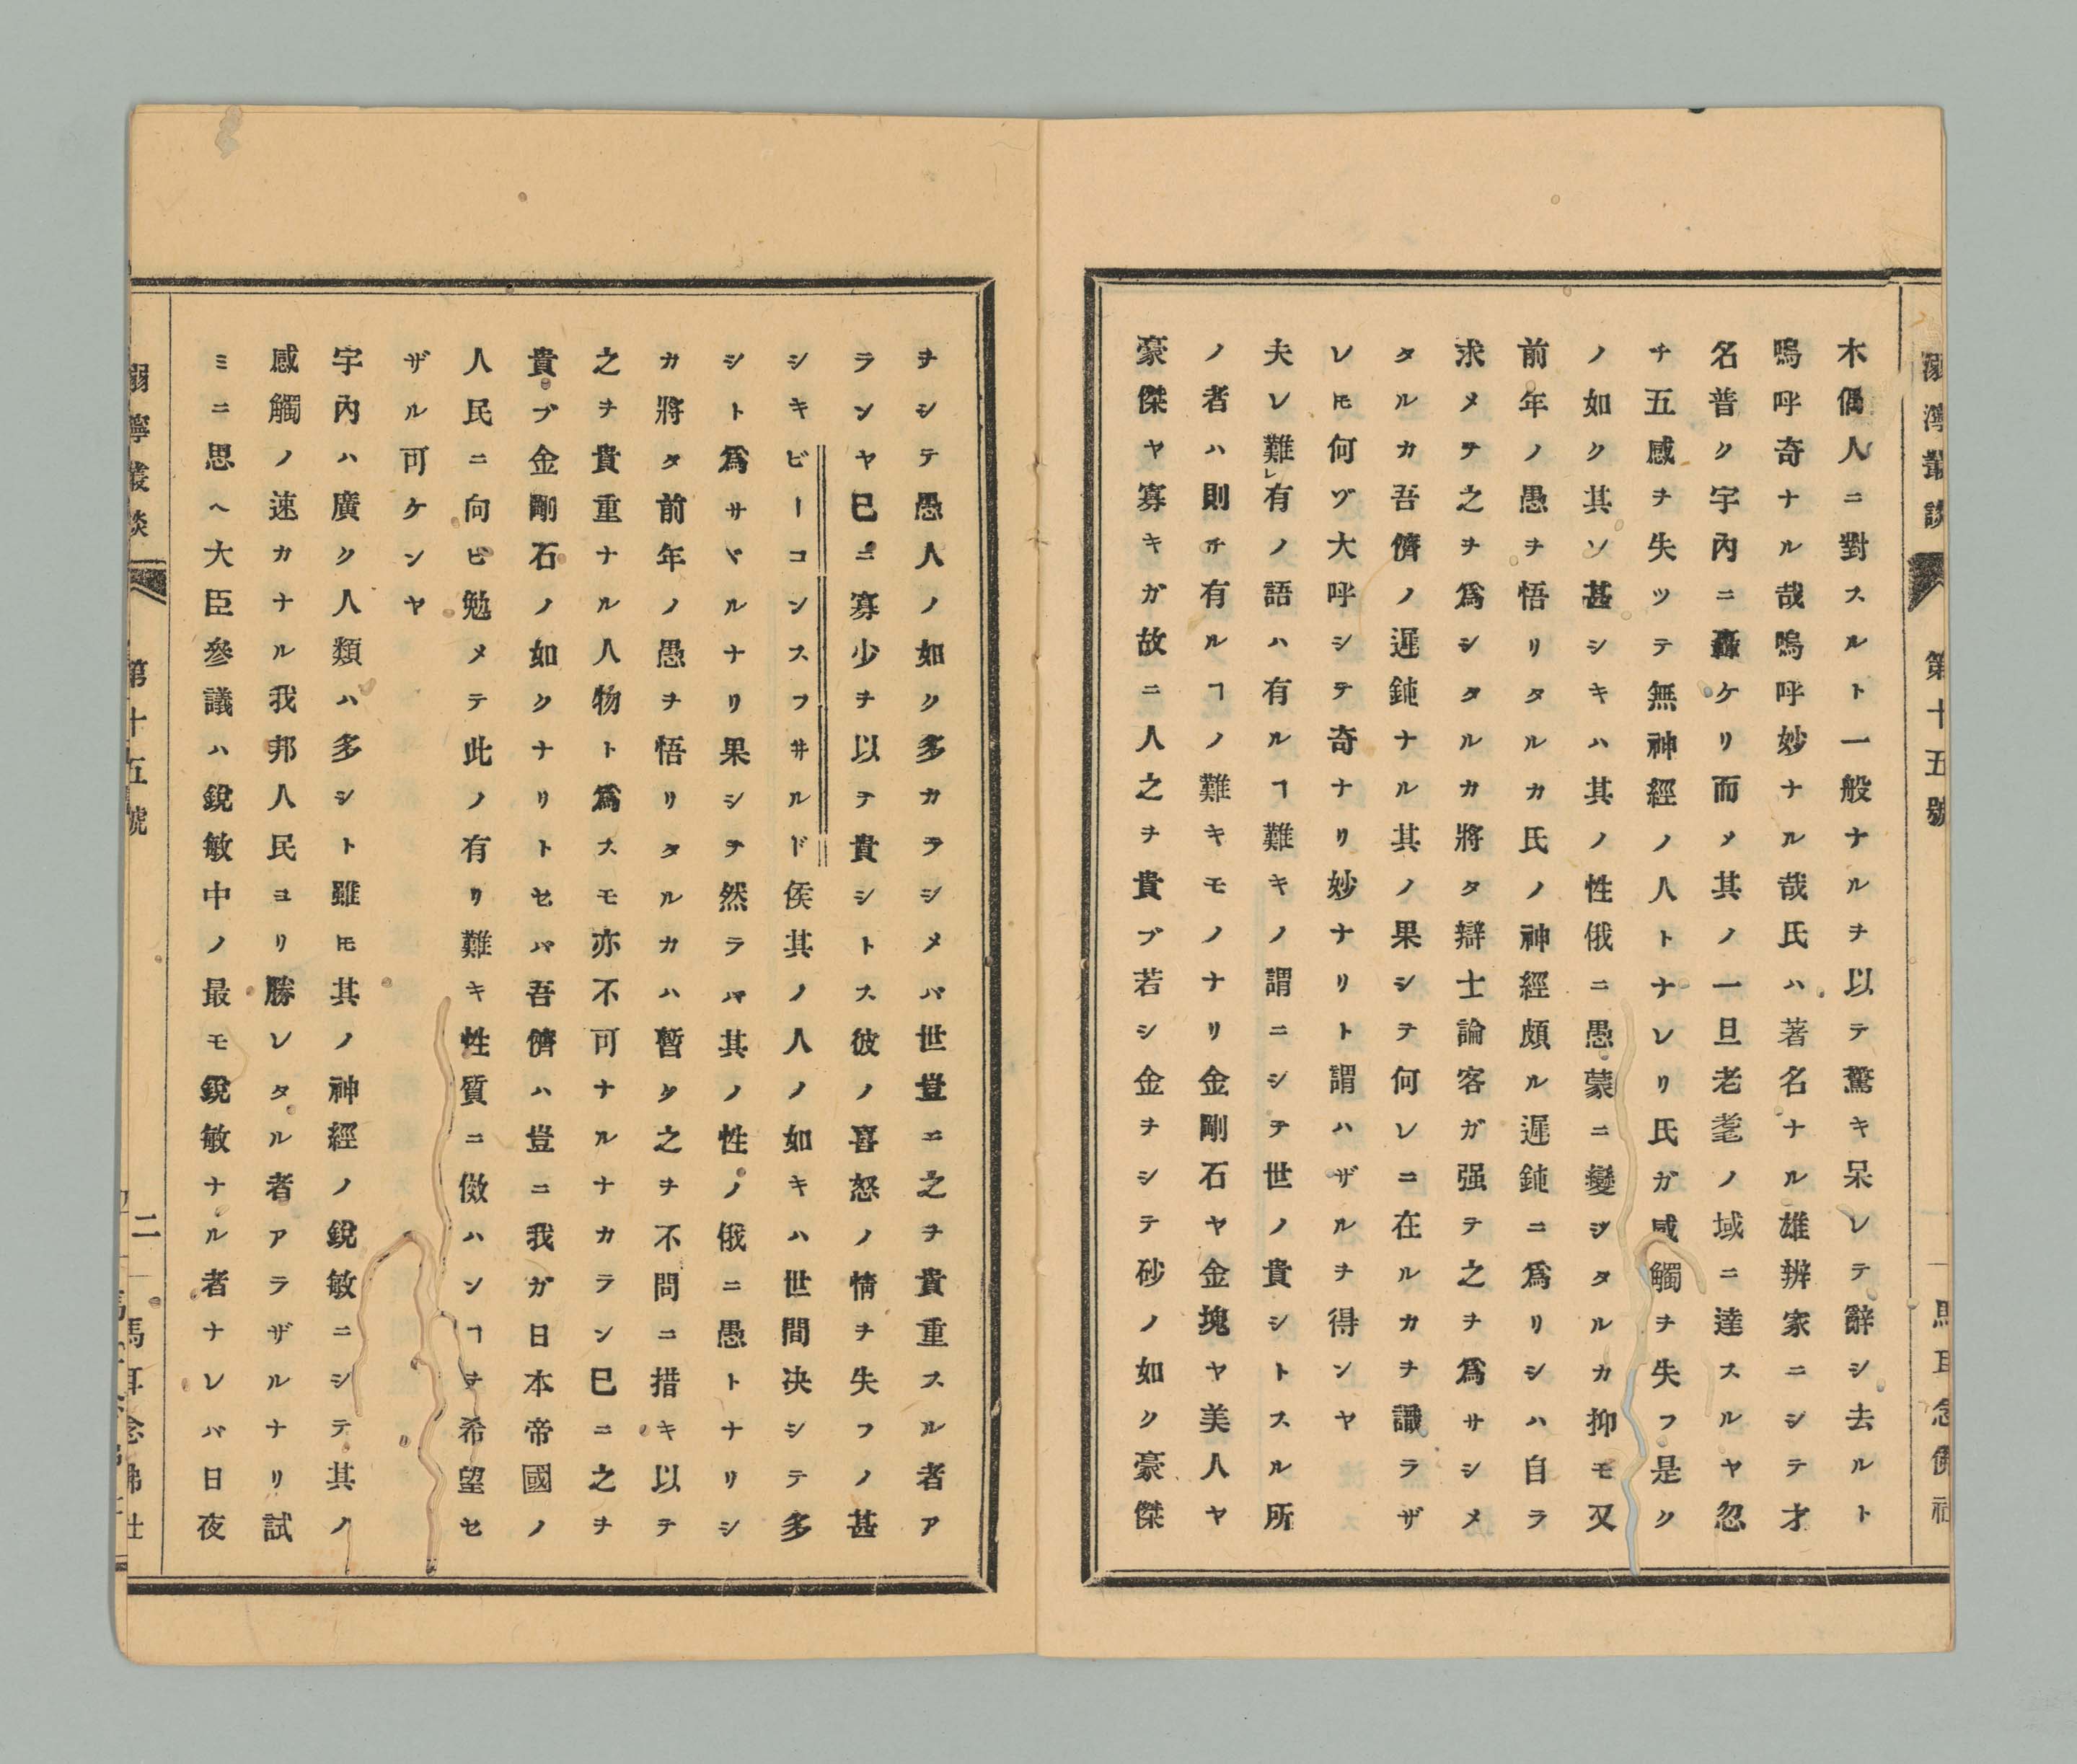 木偶人ニ對スルト一般ナルヲ以テ驚キ呆レテ辭シ去ルト
嗚呼奇ナル哉嗚呼妙ナル哉氏ハ著名ナル雄辨家ニシテ才
名普ク宇內ニ轟ケリ而メ其ノ一旦老耄ノ域ニ達スルヤ忽
チ五感ヲ失ツテ無神經ノ人トナレリ氏ガ感觸ヲ失フ是ク
ノ如ク其ソ甚シキハ其ノ性俄ニ愚蒙ニ變ジタルカ抑モ又
前年ノ愚ヲ悟リタルカ氏ノ神經頗ル遲鈍ニ爲リシハ自ラ
求メテ之ヲ爲シタルカ將タ辯士論客ガ强テ之ヲ爲サシメ
タルカ吾儕ノ遲鈍ナル其ノ果シテ何レニ在ルカヲ識ラザ
レ𪜈何ゾ大呼シテ奇ナリ妙ナリト謂ハザルヲ得ンヤ
夫レ難レ有ノ語ハ有ルヿ難キノ謂ニシテ世ノ貴シトスル所
ノ者ハ則チ有ルヿノ難キモノナリ金剛石ヤ金塊ヤ美人ヤ
豪傑ヤ寡キガ故ニ人之ヲ貴ブ若シ金ヲシテ砂ノ如ク豪傑
ヲシテ愚人ノ如ク多カラシメバ世豈ニ之ヲ貴重スル者ア
ランヤ已ニ寡少ヲ以テ貴シトス彼ノ喜怒ノ情ヲ失フノ甚
シキビーコンスフ井ルド侯其ノ人ノ如キハ世間决シテ多
シト爲サヾルナリ果シテ然ラバ其ノ性ノ俄ニ愚トナリシ
カ將タ前年ノ愚ヲ悟リタルカハ暫ク之ヲ不問ニ措キ以テ
之ヲ貴重ナル人物ト爲スモ亦不可ナルナカラン已ニ之ヲ
貴ブ金剛石ノ如クナリトセバ吾儕ハ豈ニ我ガ日本帝國ノ
人民ニ向ヒ勉メテ此ノ有リ難キ性質ニ傚ハンヿヲ希望セ
ザル可ケンヤ
宇內ハ廣ク人類ハ多シト雖𪜈其ノ神經ノ銳敏ニシテ其ノ
感觸ノ速カナル我邦人民ヨリ勝レタル者アラザルナリ試
ミニ思ヘ大臣參議ハ銳敏中ノ最モ銳敏ナル者ナレバ日夜
第十五號
二
馬耳念佛社